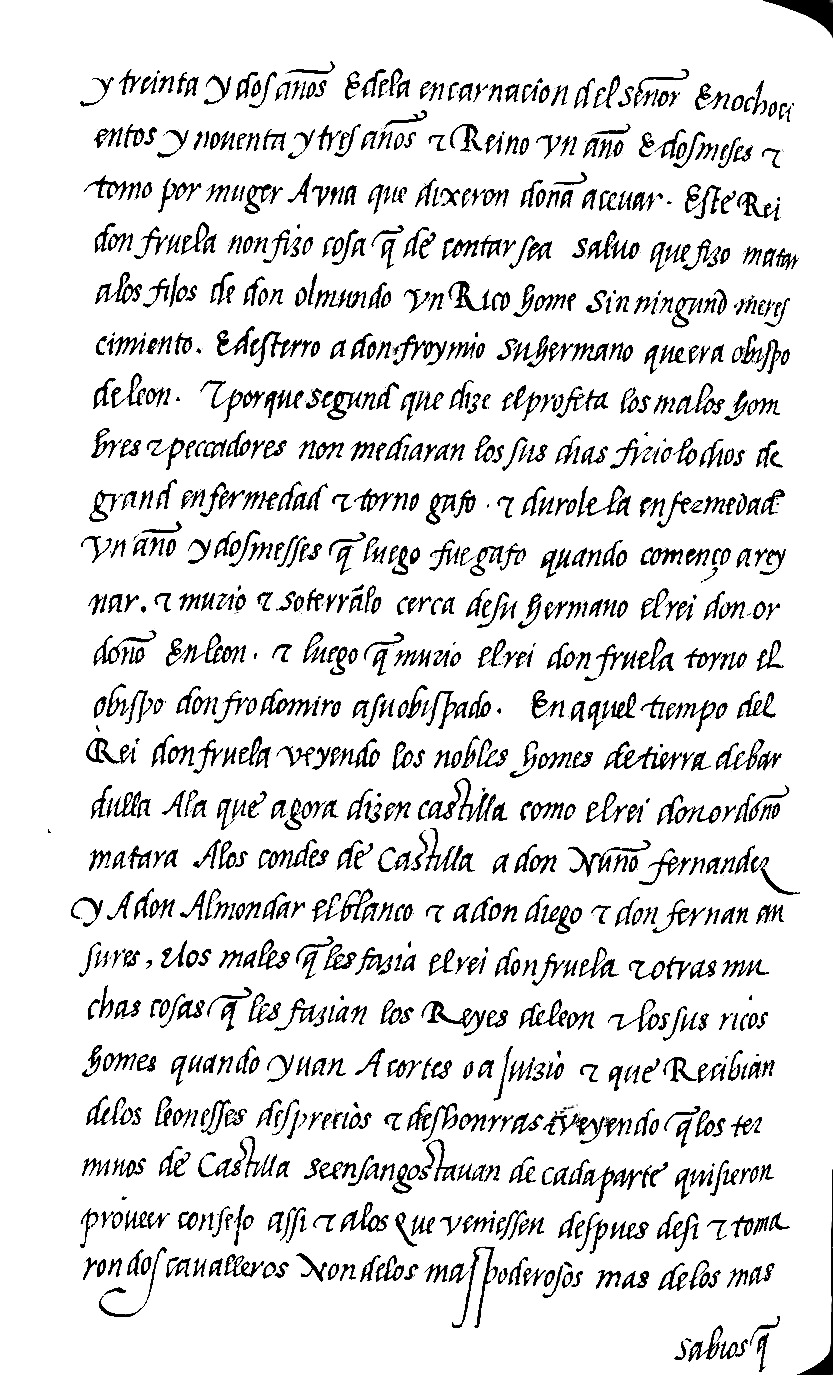 y treinta y dos años E dela encarnacion del señor En ochoci
entos y noventa y tres años τ Reino vn año E dos meses τ
tomo por muger A vna que dixeron doña aceuar. Este Rei
don fruela non fizo cosa q̃ de contar sea salvo que fizo matar
alos fijos de don olmundo vn Rico home sin ningund meres
cimiento. E desterro a don froymio su hermano que era obispo
de leon. τ porque segund que dize el profeta los malos hom
bres τ peccadores non mediaran los sus dias fizio lo dios de
grand enfermedad τ torno gafo. τ durole la enfermedad
vn año y dos messes q̃ luego fue gafo quando començo a rey
nar. τ murio τ soterrãlo cerca de su hermano el rei don or
doño En leon. τ luego q̃ murio el rei don fruela torno el
obispo don frodomiro a su obispado. En aquel tiempo del
Rei don fruela veyendo los nobles homes de tierra de bar
dulla Ala que agora dizen castilla como el rei don ordoño
matara Alos condes de Castilla a don Nuño fernandez
y A don Almondar el blanco τ a don diego τ don fernan an
sures, τ los males q̃ les fazia el rei don fruela τ otras mu
chas cosas q̃ les fazian los Reyes de leon τ los sus ricos
homes quando yuan A cortes o a juizio τ que Recibian
delos leonesses desprecios τ deshonrras τ veyendo q̃ los ter
minos de Castilla se ensangostauan de cada parte quisieron
proueer consejo assi τ alos que veniessen despues desi τ toma
ron dos caualleros Non delos mas poderosos mas de los mas
sabios q̃